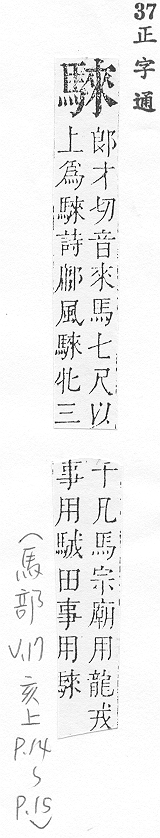 37
正字通
騋
郎才切音來馬七尺以
上爲騋詩鄘風騋牝三
千凡馬宗廟用龍戎
事用駥田事用騋
(馬部
V.17
亥上
P.14
~
P.15)